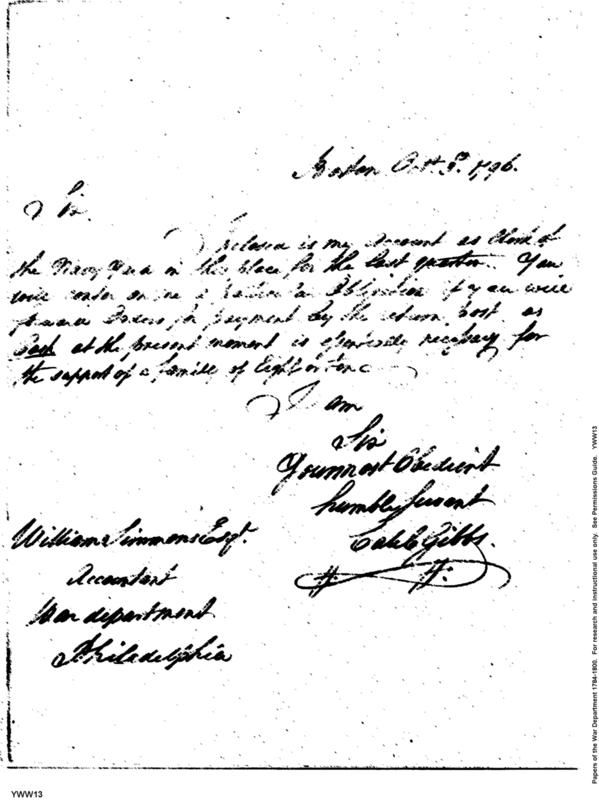 Boston Oct 3d. 1796.
Sir.
Inclosed is my Account as Clerk of
the Navy Yard in this place for the last quarter. You
will confer on me a particular Obligation if you will
forward Orders for payment by the return Post as
Cash at the present moment is essentially necessary for
the support of a family of Eight or ten.
I am
Sir
Your most Obedient
humble Servant
Caleb Gibbs.
William Simmons Esqr.
Accountant
War department
Philadelphia
Papers of the War Department 1784-1800. For research and instructional use only. See Permissions Guide. YWW13
YWW13